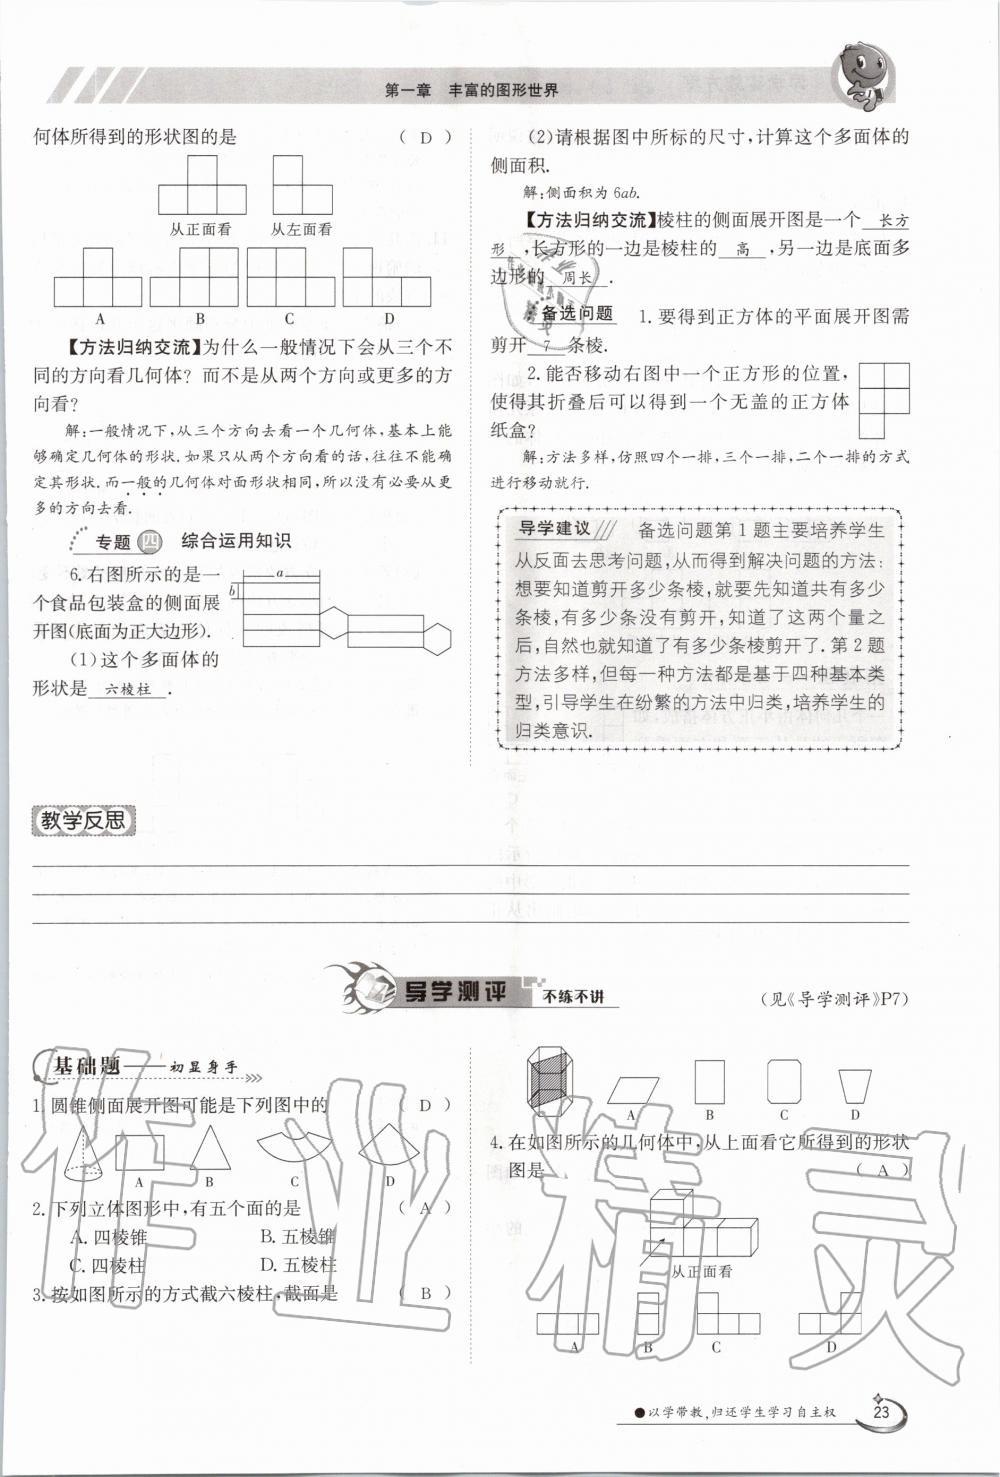 第一章　丰富的图形世界
何体所得到的形状图的是　( D )
从正面看　从左面看
A　B　C　D
【方法归纳交流】为什么一般情况下会从三个不
同的方向看几何体？而不是从两个方向或更多的方
向看？
解:一般情况下,从三个方向去看一个几何体,基本上能
够确定几何体的形状.如果只从两个方向看的话,往往不能确
定其形状.而一般的几何体对面形状相同,所以没有必要从更
多的方向去看.
专题四　综合运用知识
6.右图所示的是一
个食品包装盒的侧面展
开图(底面为正大边形).
a
b
(1)这个多面体的
形状是 六棱柱 .
(2)请根据图中所标的尺寸,计算这个多面体的
侧面积.
解:侧面积为 6ab.
【方法归纳交流】棱柱的侧面展开图是一个 长方
形 ,长方形的一边是棱柱的 高 ,另一边是底面多
边形的 周长 .
备选问题　1.要得到正方体的平面展开图需
剪开 7 条棱.
2.能否移动右图中一个正方形的位置,
使得其折叠后可以得到一个无盖的正方体
纸盒？
解:方法多样,仿照四个一排,三个一排,二个一排的方式
进行移动就行.
导学建议　备选问题第 1 题主要培养学生
从反面去思考问题,从而得到解决问题的方法:
想要知道剪开多少条棱,就要先知道共有多少
条棱,有多少条没有剪开,知道了这两个量之
后,自然也就知道了有多少条棱剪开了.第 2 题
方法多样,但每一种方法都是基于四种基本类
型,引导学生在纷繁的方法中归类,培养学生的
归类意识.
教学反思
导学测评　不练不讲
(见《导学测评》P7)
基础题——初显身手
1.圆锥侧面展开图可能是下列图中的　( D )
A　B　C　D
2.下列立体图形中,有五个面的是　( A )
A.四棱锥　B.五棱锥
C.四棱柱　D.五棱柱
3.按如图所示的方式截六棱柱,截面是　( B )
A　B　C　D
4.在如图所示的几何体中,从上面看它所得到的形状
图是　( A )
从正面看
A　B　C　D
●以学带教,归还学生学习自主权
23
作业精灵